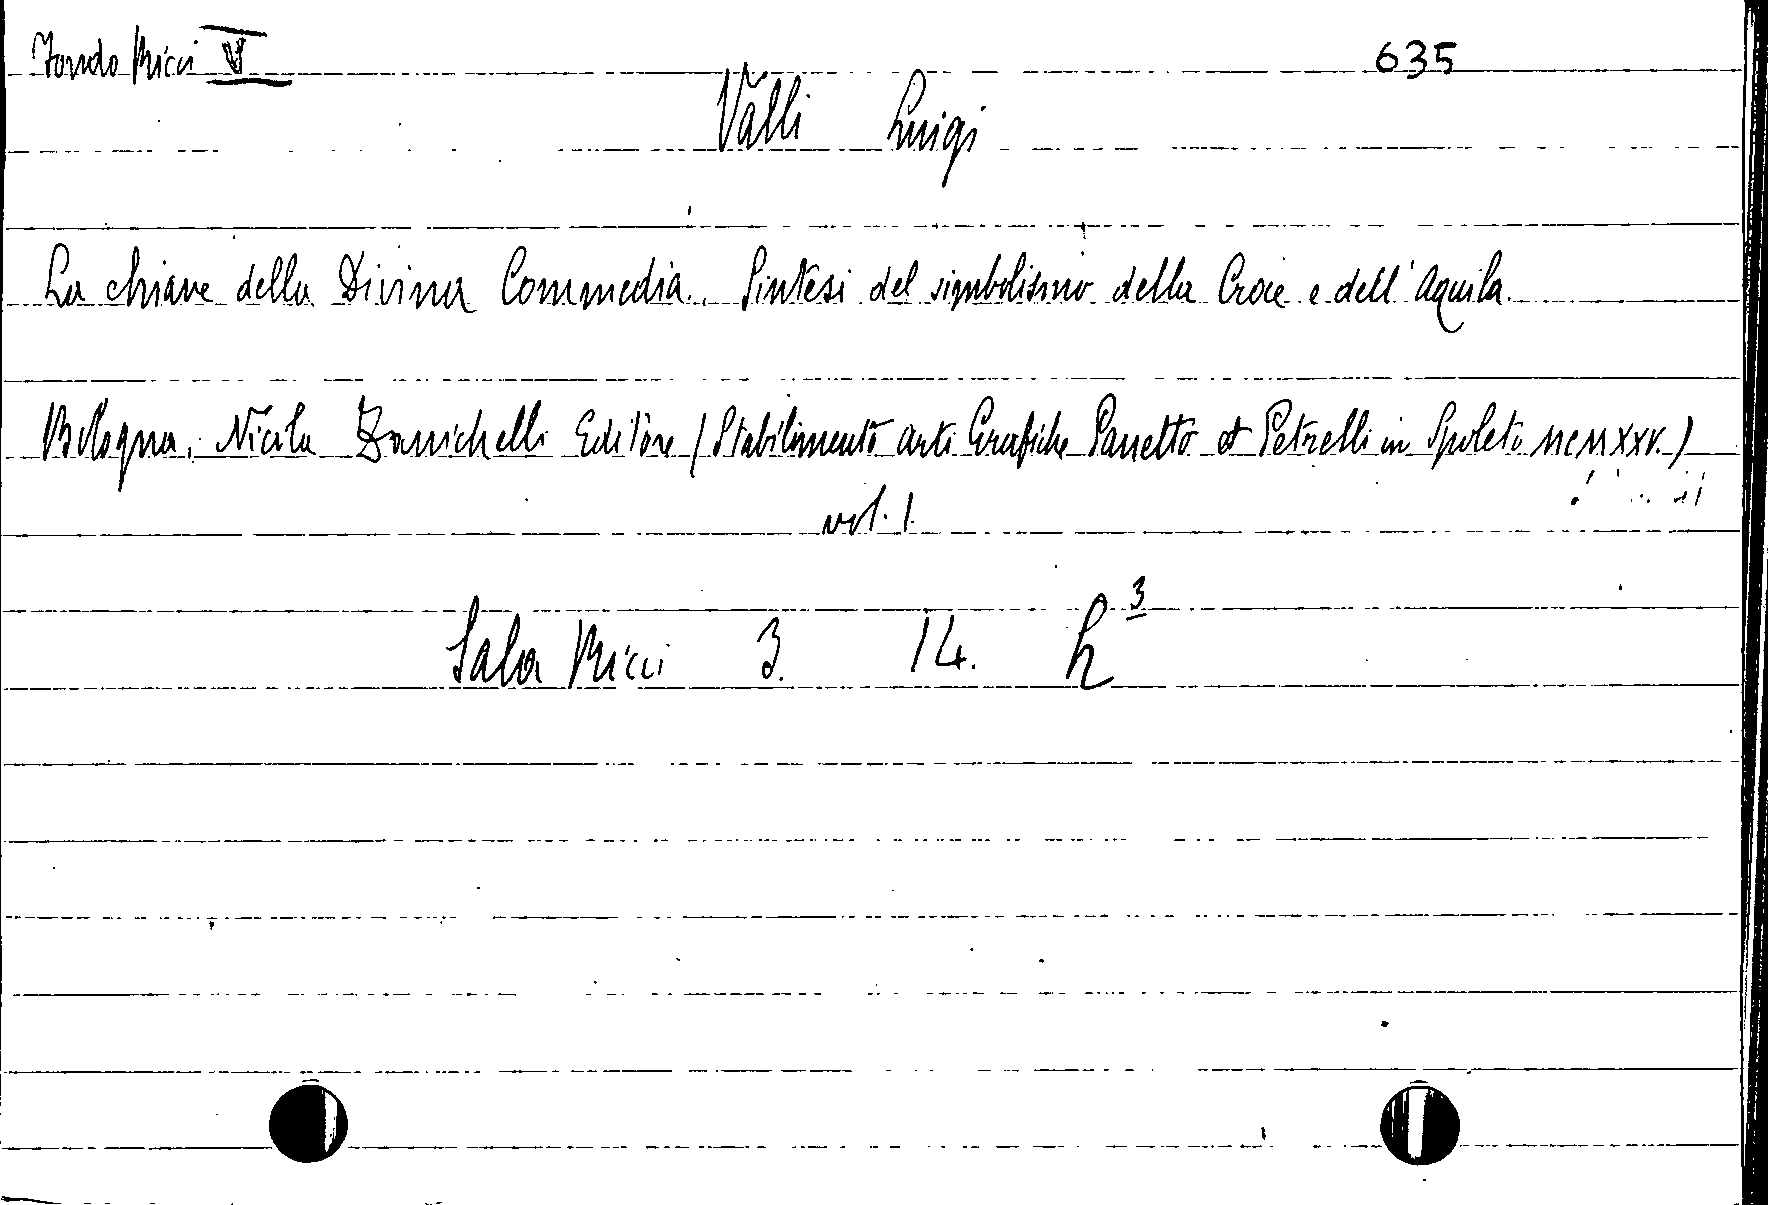 Fondo Ricci V 635
Valli Luigi
La chiave della Divina Commedia. Sintesi del simbolismo della Croce e dell'Aquila.
Bologna. Nicola Zanichelli Editore (Stabilimento Arti Grafiche Panetto et Petrelli in Spoleto MCMXXV.)
vol. 1.
Sala Ricci 3. 14. h³